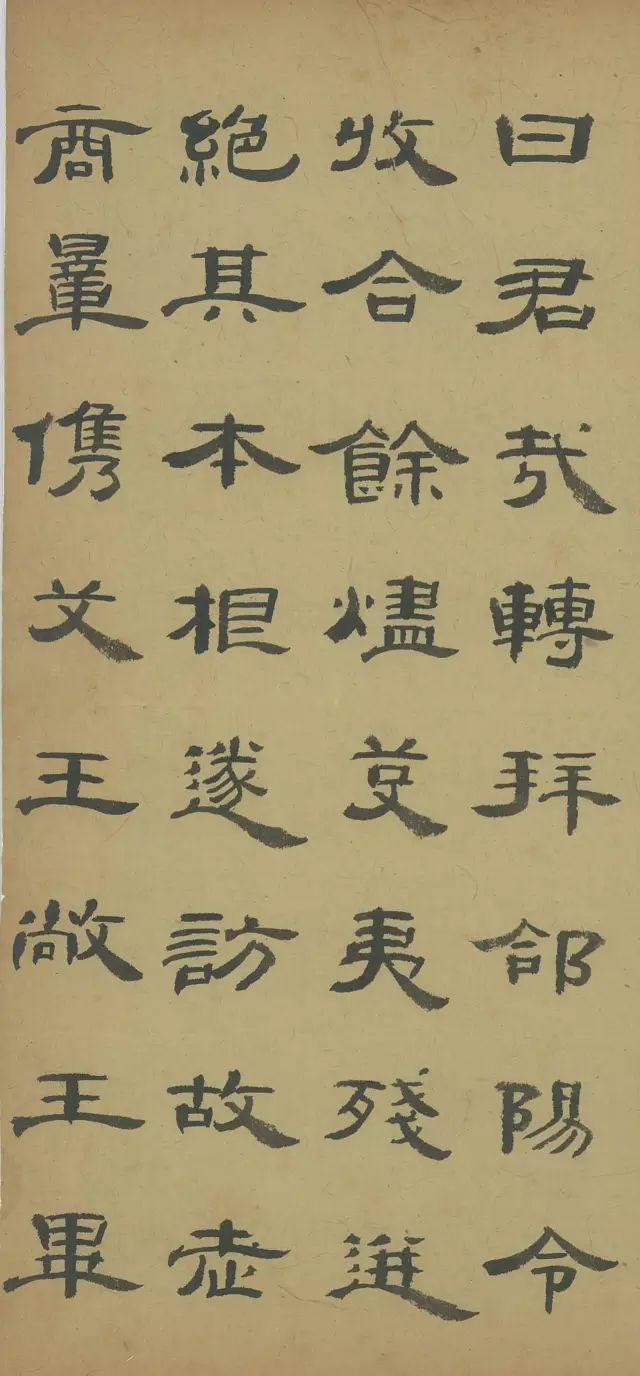 曰君哉轉拜郃陽令
收合餘燼芟夷殘迸
絕其本根遂訪故老
商量儁艾王敞王畢